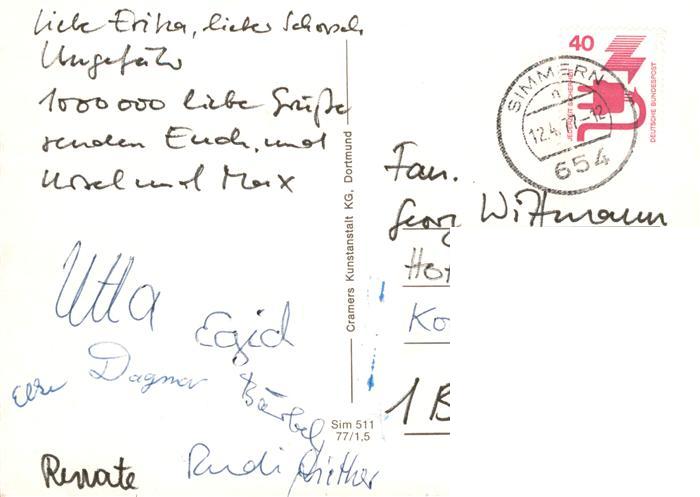 liebe Erika, lieber Schorsch
Ungefähr
1000 000 liebe Grüße
senden Euch, und
Ursel und Max
Utta
Egid
Else
Dagmar
Bärbel
Renate
Rudi Günther
Cramers Kunstanstalt KG, Dortmund
Sim 511
77/1,5
40
JEDERZEIT SICHERHEIT
DEUTSCHE BUNDESPOST
SIMMERN
n
12.4.77-12
654
Fam.
Georg Wittmann
Ho
Ko
1 B